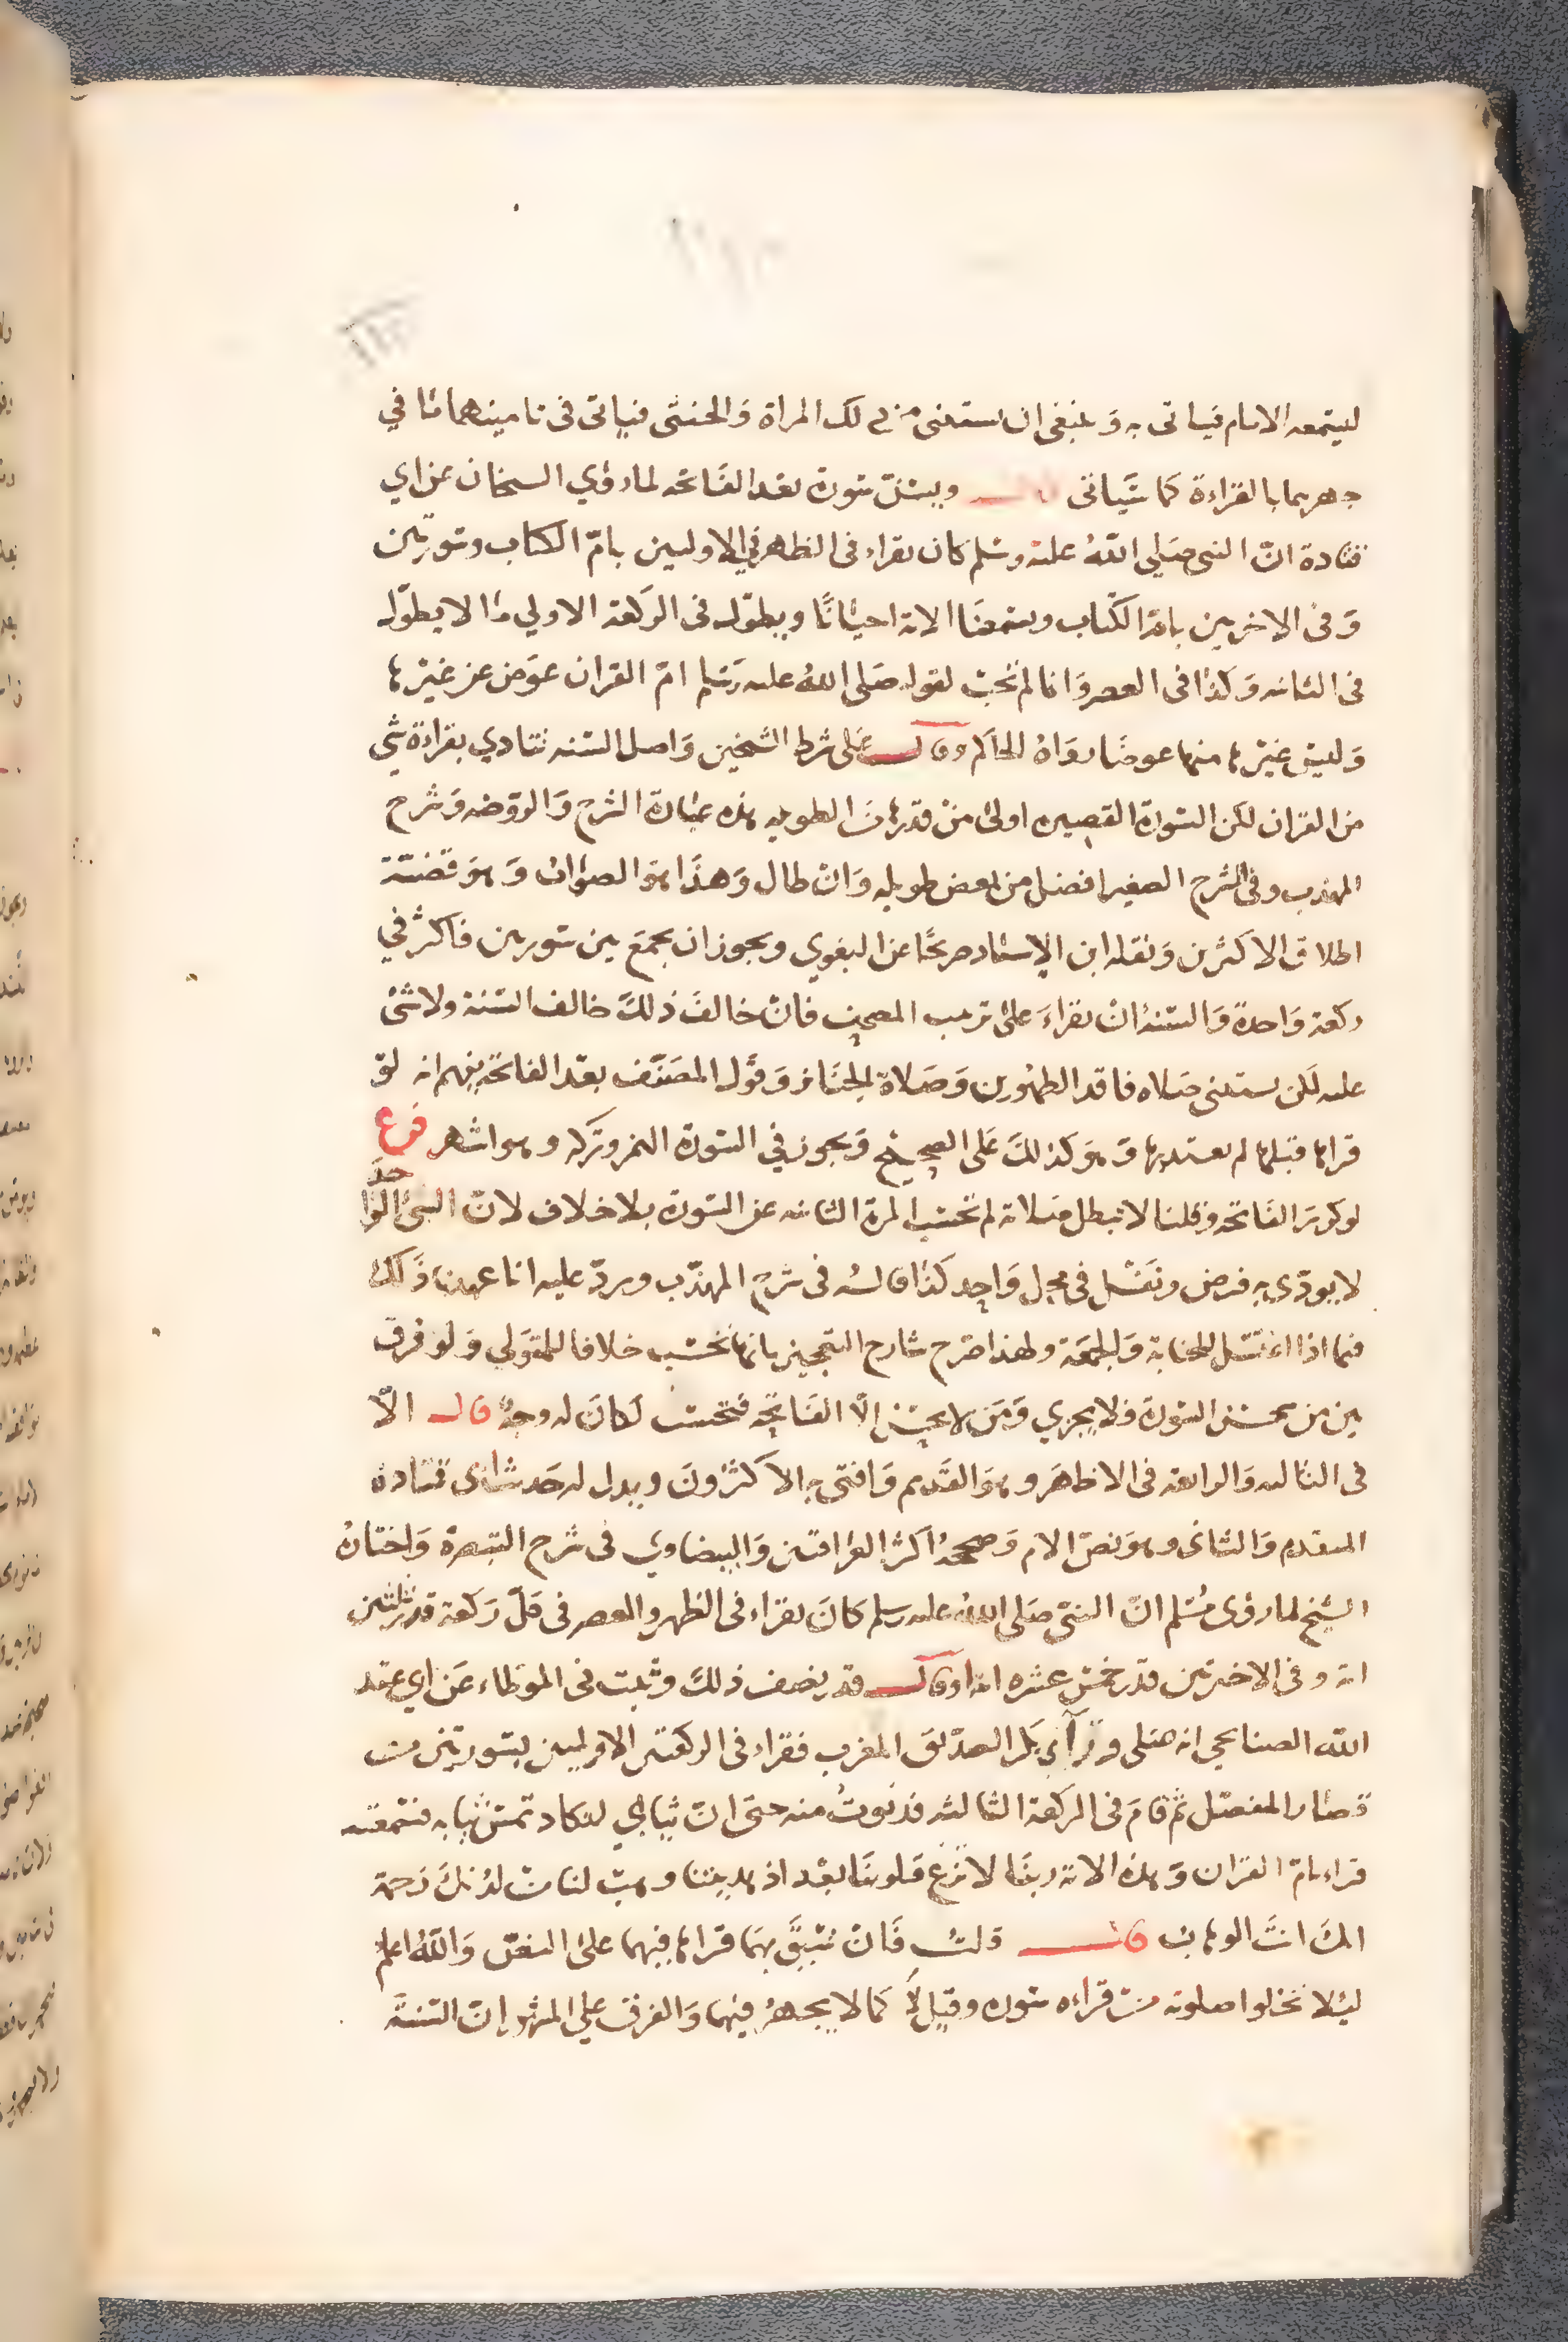 ليسمعه الامام فياتى به وينبغى ان يستثنى من ذلك المراة والخنثى فياتى فى تامينهما ما في
جهرهما بالقراءة كما سياتى قال ويسن سورة بعد الفاتحة لما روي الشيخان عن ابي
قتادة ان النبي صلي الله عليه وسلم كان يقراء فى الظهر في الاوليين بام الكتاب وسورتين
وفى الاخريين بام الكتاب ويسمعنا الاية احيانا ويطول فى الركعة الاولي ما لا يطول
فى الثانيه وكذا فى العصر وانما لم تجب لقوله صلى الله عليه وسلم ام القران عوض عن غيرها
وليس غيرها منها عوضا رواه الحاكم وقال على شرط الشيخين واصل السنه تتادي بقراءة شي
من القران لكن السورة القصيره اولى من قدرها من الطويله هذه عبارة الشرح والروضه وشرح
المهذب وفى الشرح الصغير افضل من بعض طويله وان طال وهذا هو الصواب وهو قضية
اطلاق الاكثرين ونقله ابن الاستاد صريحا عن البغوي ويجوز ان يجمع بين سورتين فاكثر في
ركعة واحدة والسنة ان يقراء على ترتيب المصحف فان خالف ذلك خالف السنة ولا شئ
عليه لكن يستثنى صلاه فاقد الطهورين وصلاة الجنازه وقول المصنف بعد الفاتحة يفهم انه لو
قراها قبلها لم يعتد بها وهو كذلك على الصحيح ويجوز في السورة الهمز وتركه وهو اشهر فرع
لو كرر الفاتحه وقلنا لا تبطل صلاته لم تحسب المرة الثانيه عن السورة بلا خلاف لان الشئ الواحد
لا يودى به فرض ونفل في محل واحد كذا قاله فى شرح المهذب ويرد عليه انا عهدنا ذلك
فيما اذا اغتسل للجنابة والجمعة ولهذا صرح شارح التعجيز بانها تحسب خلافا للمتولي ولو فرق
بين من يحسن السورة فلا يجزي ومن لا يحسن الا الفاتحة فتحسب لكان له وجه قال الا
فى الثالثه والرابعه فى الاظهر وهو القديم وافتى به الاكثرون ويدل له حديث ابى قتادة
المتقدم والثانى وهو نص الام وصححه اكثر العراقيين والبيضاوي فى شرح التبصرة واختاره
الشيخ لما روى مسلم ان النبى صلى الله عليه وسلم كان يقراء فى الظهر والعصر فى كل ركعة قدر ثلثين
اية وفى الاخريين قدر خمس عشره اية او قال قدر نصف ذلك وثبت فى الموطاء عن ابي عبد
الله الصنابحي انه صلى وراء ابى بكر الصديق المغرب فقراء فى الركعتين الاوليين بسورتين من
قصار المفصل ثم قام فى الركعة الثالثه فدنوت منه حتى ان ثيابي لتكاد تمس ثيابه فسمعته
قراء بام القران وهذه الاية ربنا لا تزغ قلوبنا بعد اذ هديتنا وهب لنا من لدنك رحمة
انك انت الوهاب قال قلت فان سبق بهما قراها فيهما على النص والله اعلم
ليلا تخلوا صلوته من قراءه سوره وقيل لا كما لا يجهر فيهما والفرق علي المشهور ان السنة